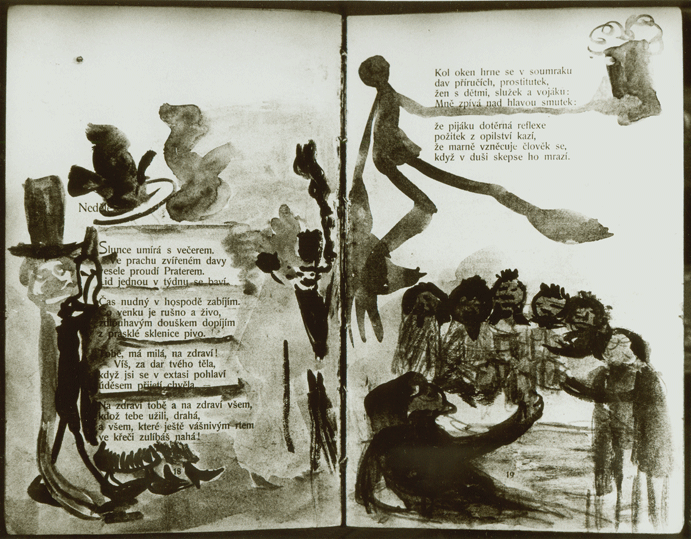 Slunce umírá s večerem.
ve prachu zvířeném davy
vesele proudí Praterem.
Lid jednou v týdnu se baví.
Čas nudný v hospodě zabíjím.
venku je rušno a živo,
douškem dopíjím
z prasklé sklenice pivo.
Tobě, má milá, na zdraví!
Víš, za dar tvého těla,
když jsi se v extasi pohlaví
úděsem přijetí chvěla.
Na zdraví tobě a na zdraví všem,
kdož tebe užili, drahá,
a všem, které ještě vášnivým rtem
ve křeči zulíbáš nahá!
18
Kol oken hrne se v soumraku
dav příručích, prostitutek,
žen s dětmi, služek a vojáku:
Mně zpívá nad hlavou smutek:
že pijáku dotěrná reflexe
požitek z opilství kazí,
že marně vzněcuje člověk se,
když v duši skepse ho mrazí.
19